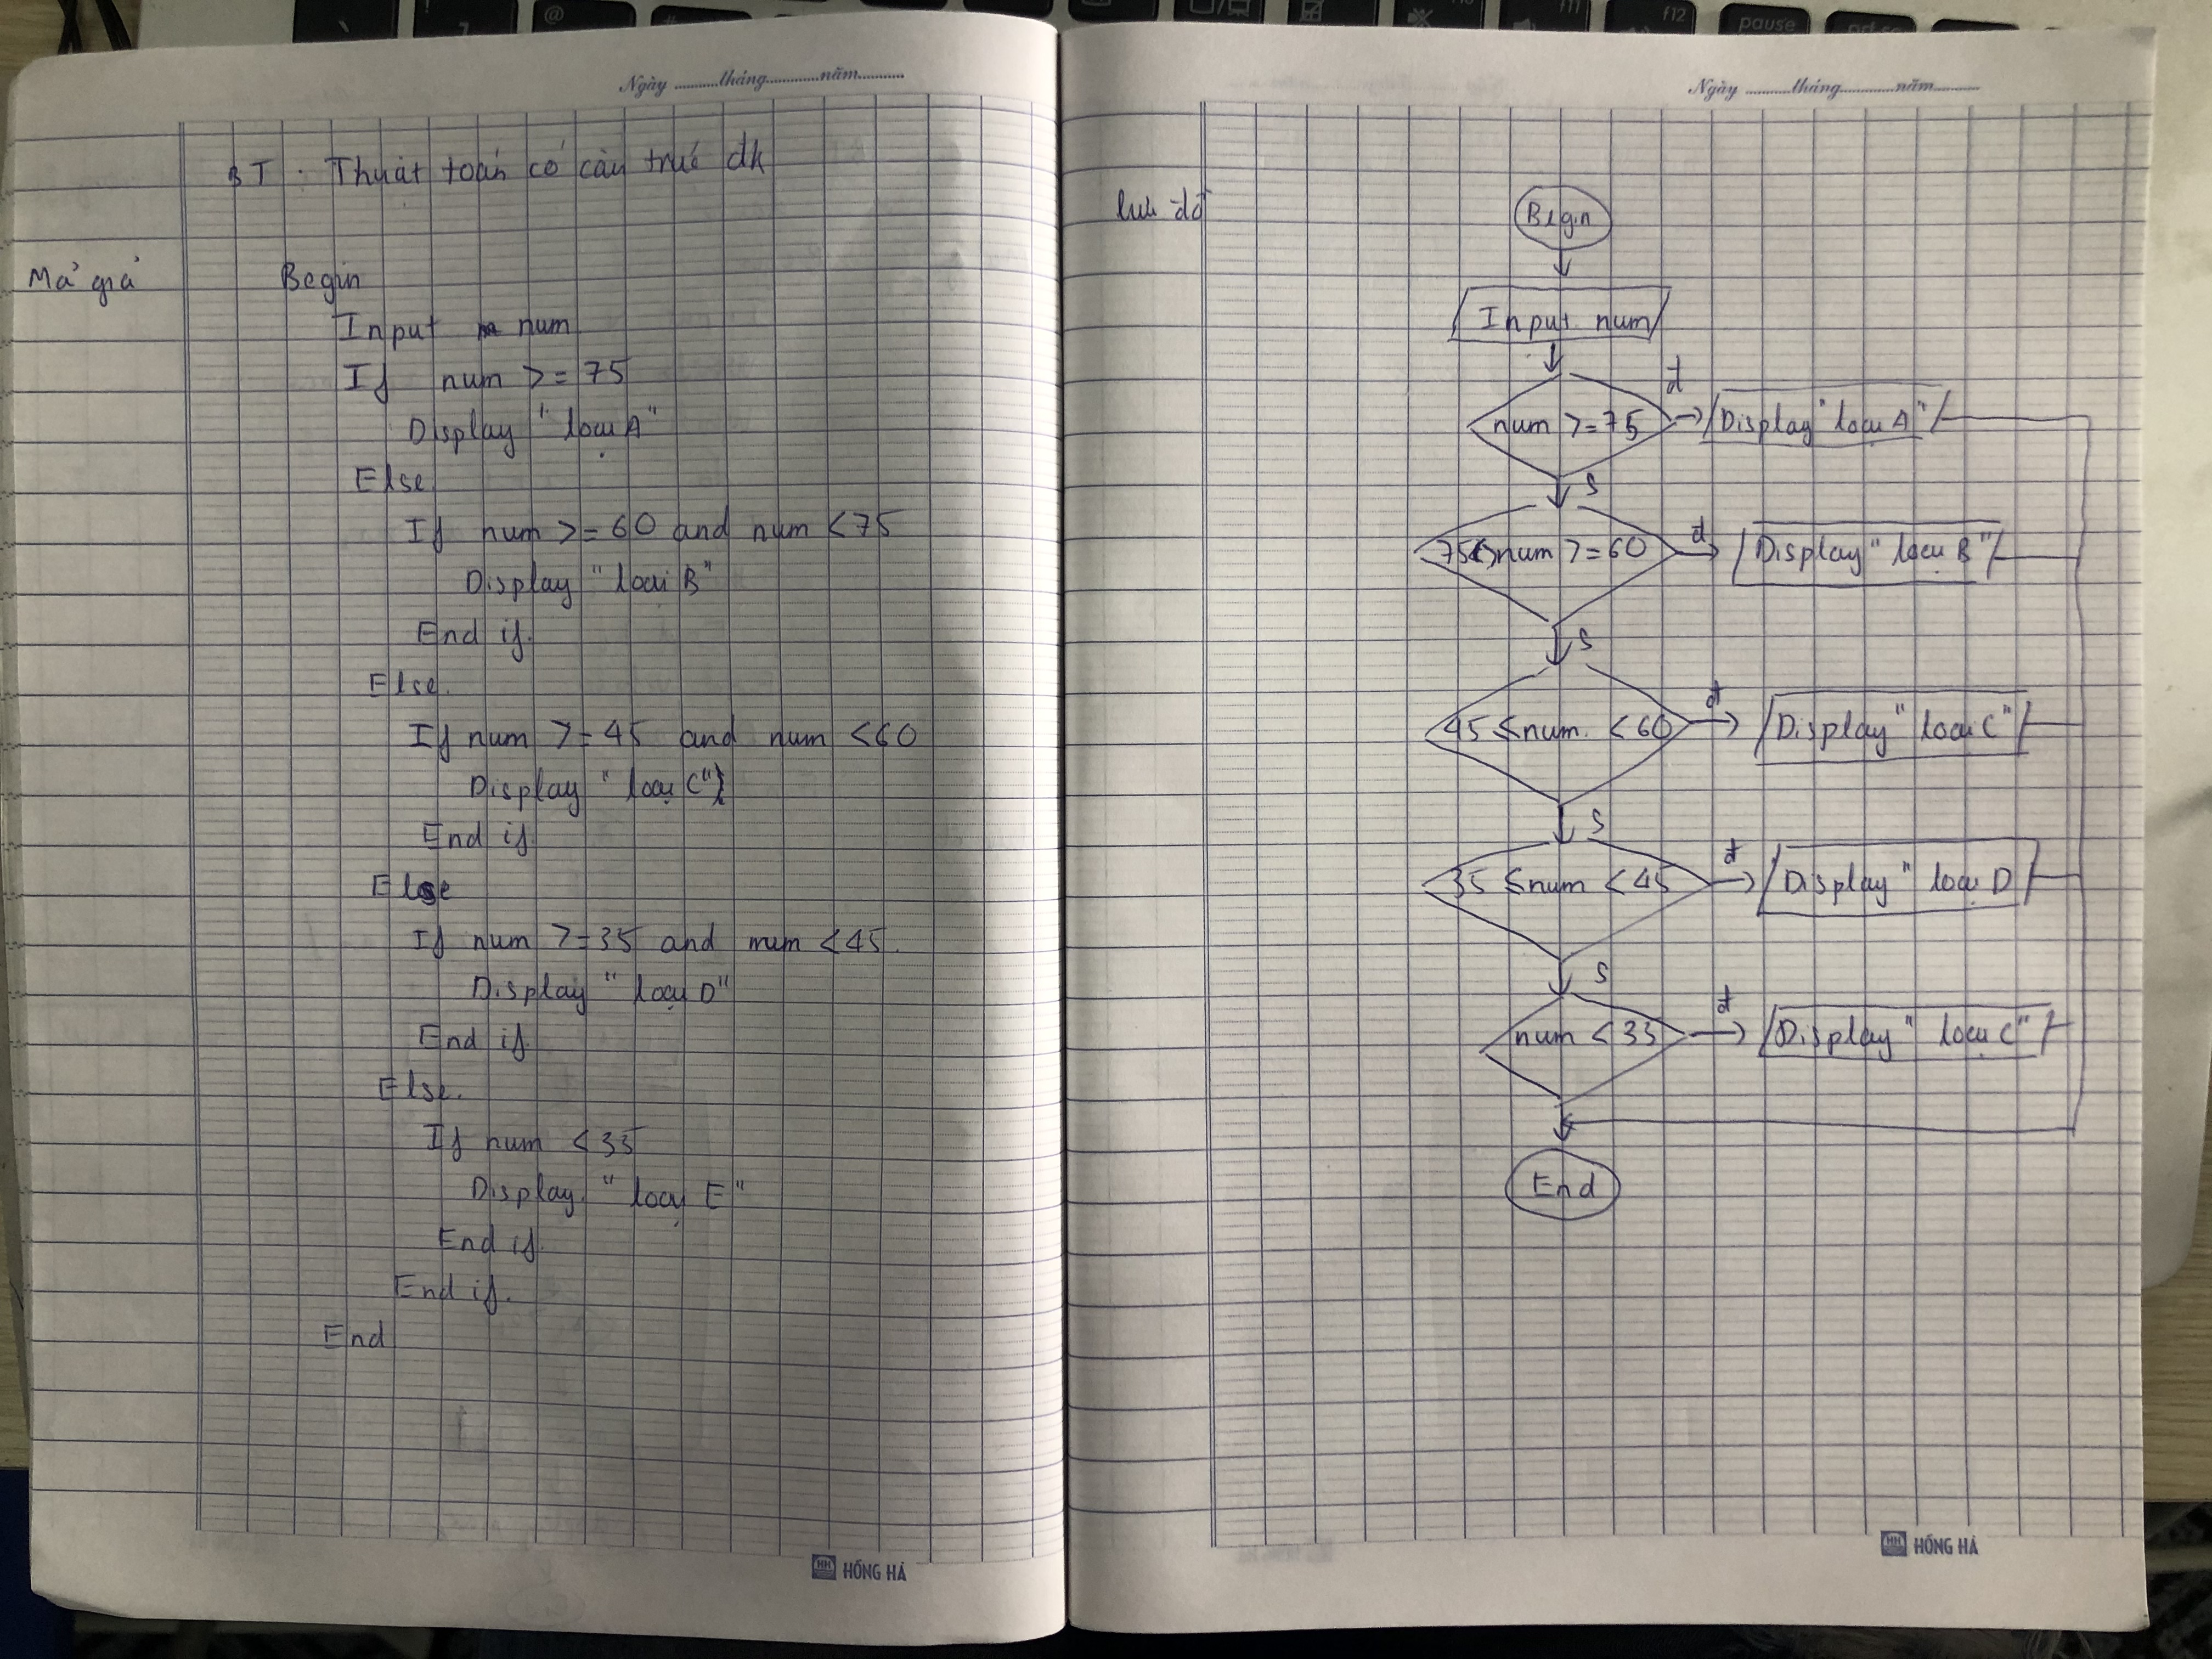 Ngày ............tháng............năm............
BT. Thuật toán có cấu trúc đk
Mả giả
Begin
Input num
If num >= 75
Display "loại A"
Else
If num >= 60 and num < 75
Display "loại B"
End if.
Else
If num >= 45 and num < 60
Display "loại C"
End if
Else
If num >= 35 and num < 45.
Display "loại D"
End if
Else.
If num < 35
Display. "loại E"
End if
End if.
End
HỒNG HÀ
Ngày ............tháng............năm............
lưu đồ
Begin
Input num
num >= 75 đ Display "loại A"
S
75 num >= 60 đ Display "loại B"
S
45 ≤ num. < 60 đ Display "loại C"
S
35 ≤ num < 45 đ Display "loại D
S
num < 35 đ Display "loại C"
End
HỒNG HÀ
f12
pause